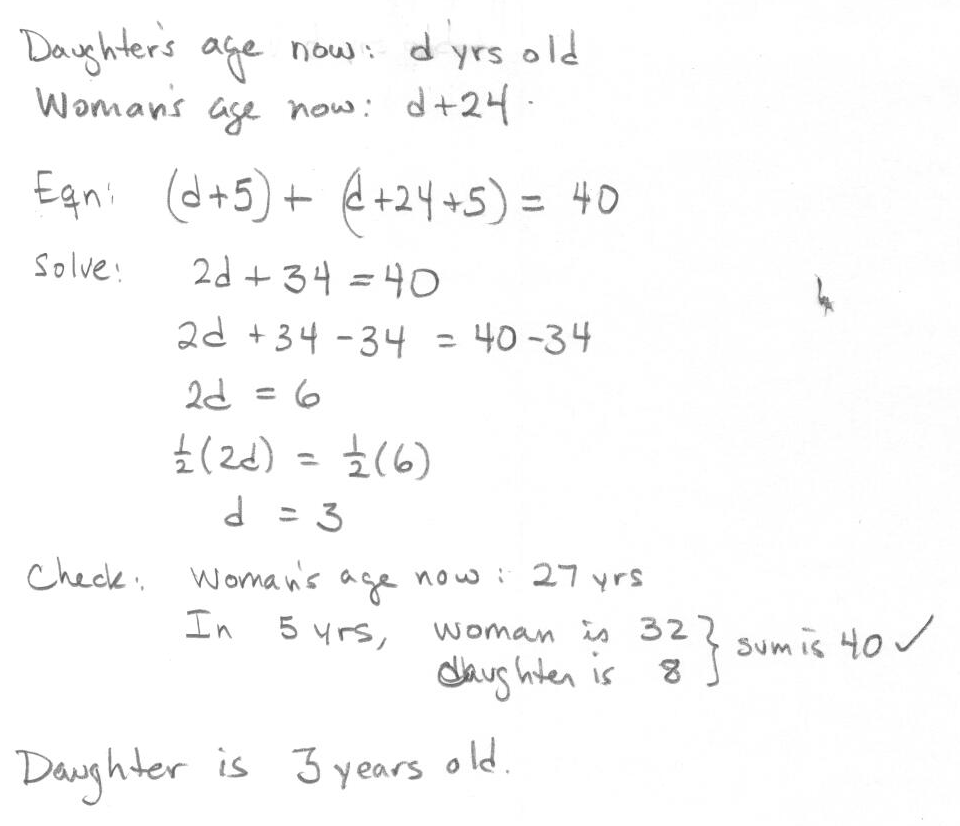 Daughter's age now: d yrs old
Woman's age now: d+24.
Eqn: (d+5) + (d+24+5) = 40
Solve: 2d + 34 = 40
2d + 34 - 34 = 40 - 34
2d = 6
½(2d) = ½(6)
d = 3
Check: Woman's age now: 27 yrs
In 5 yrs, woman is 32 } sum is 40 ✓
daughter is 8
Daughter is 3 years old.